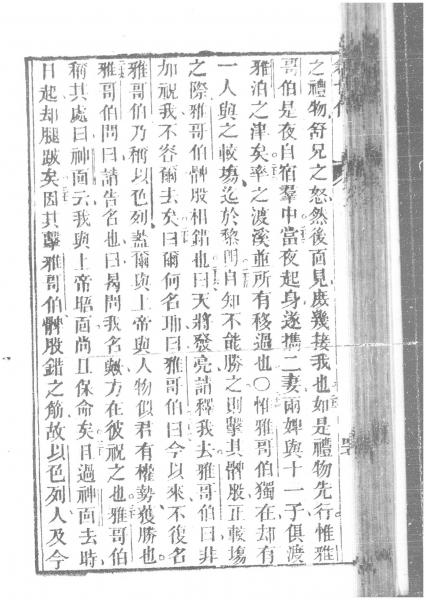 之禮物舒兄之怒然後面見庶幾接我也如是禮物先行惟雅
哥伯是夜自宿羣中當夜起身遂攜二妻兩婢與十一子俱渡
雅泊之津矣率之渡溪並所有移過也〇惟雅哥伯獨在却有
一人與之較塲迄於黎明自知不能勝之則擊其髀股正較塲
之際雅哥伯髀股相錯也曰天將發亮請釋我去雅哥伯曰非
加祝我不容爾去矣曰爾何名耶曰雅哥伯曰今以來不復名
雅哥伯乃稱以色列蓋爾與上帝與人物似君有權勢獲勝也
雅哥伯問曰請告名也曰曷問我名歟方在彼祝之也雅哥伯
稱其處曰神面云我與上帝晤面尚且保命矣且過神面去時
日起却腿跛矣因其擊雅哥伯髀股錯之筋故以色列人及今